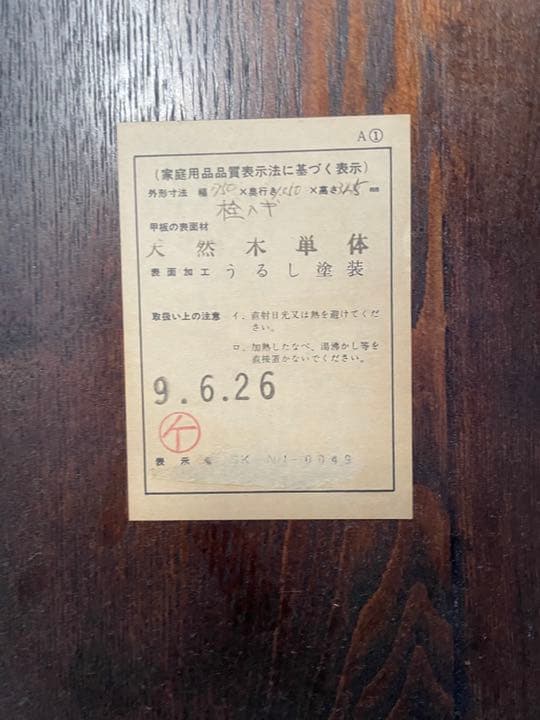 A①
(家庭用品品質表示法に基づく表示)
外形寸法 幅750×奥行き1050×高さ345mm
栓ハギ
甲板の表面材
天然木単体
表面加工 うるし塗装
取扱い上の注意 イ、直射日光又は熱を避けてください。
ロ、加熱したなべ、湯沸かし等を
直接置かないでください。
9.6.26
表示